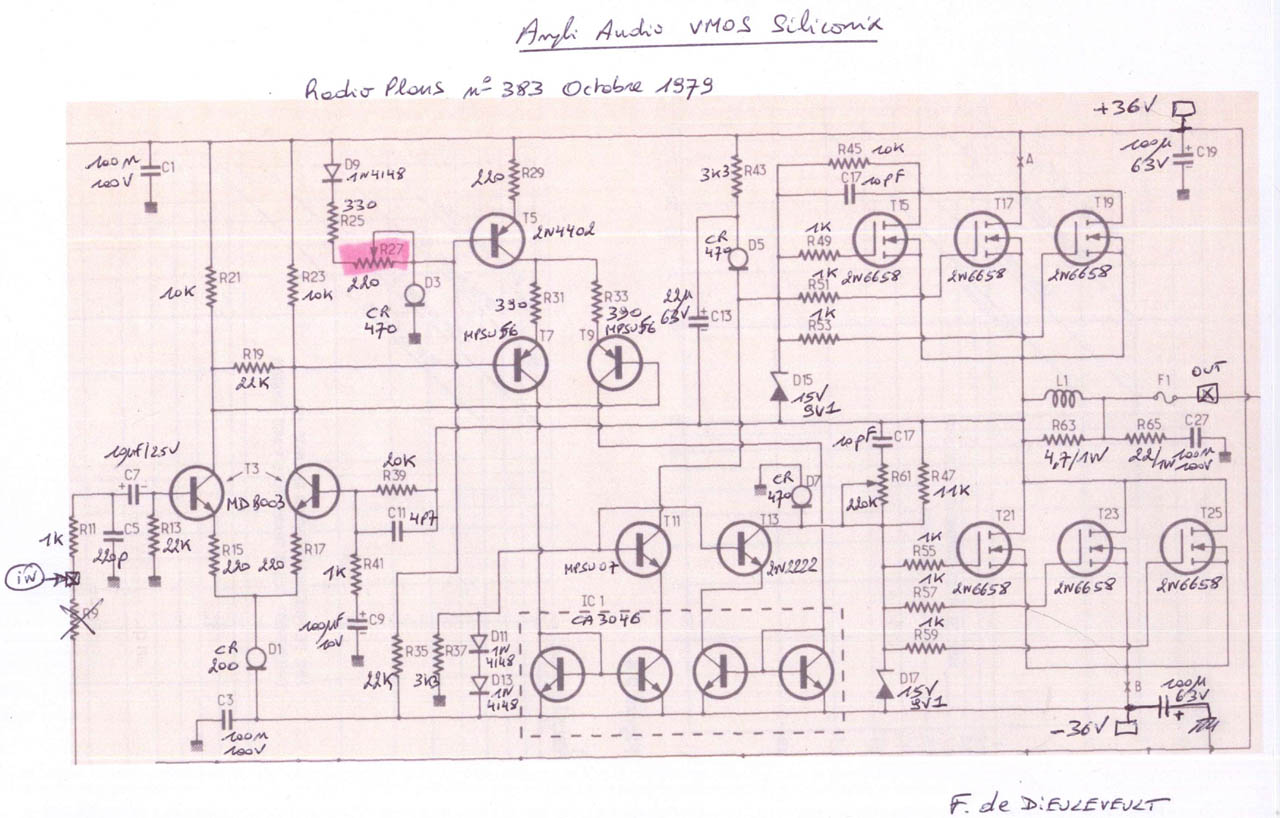 Ampli Audio VMOS Siliconix
Radio Plans n° 383 Octobre 1979
+36V
100n
100V
C1
D9
1N4148
330
R25
220
R29
T5
2N4402
R27
220
3K3
R43
R45
10K
C17
10pF
A
100µ
63V
C19
T15
T17
T19
1K
R49
1K
R51
1K
R53
2N6658
2N6658
2N6658
R21
10K
R23
10K
D3
CR
470
CR
470
D5
390
R31
R33
390
22µ
63V
C13
MPSU56
T7
T9
MPSU56
R19
22K
D15
15V
9V1
L1
F1
OUT
R63
4,7/1W
R65
22/1W
C27
100n
100V
10pF
C17
10µF/25V
C7
T3
MD8003
20K
R39
C11
4P7
CR
470
D7
R61
220K
R47
11K
R11
1K
C5
220p
R13
22K
R15
220
R17
220
1K
R41
T11
MPSU07
T13
2N2222
T21
T23
T25
1K
R55
1K
R57
R59
2N6658
2N6658
2N6658
iN
R9
IC 1
CA 3046
100µF
10V
C9
CR
200
D1
R35
22K
R37
3K3
D11
1N
4148
D13
1N
4148
D17
15V
9V1
B
100µ
63V
-36V
C3
100n
100V
F. de DIEULEVEULT